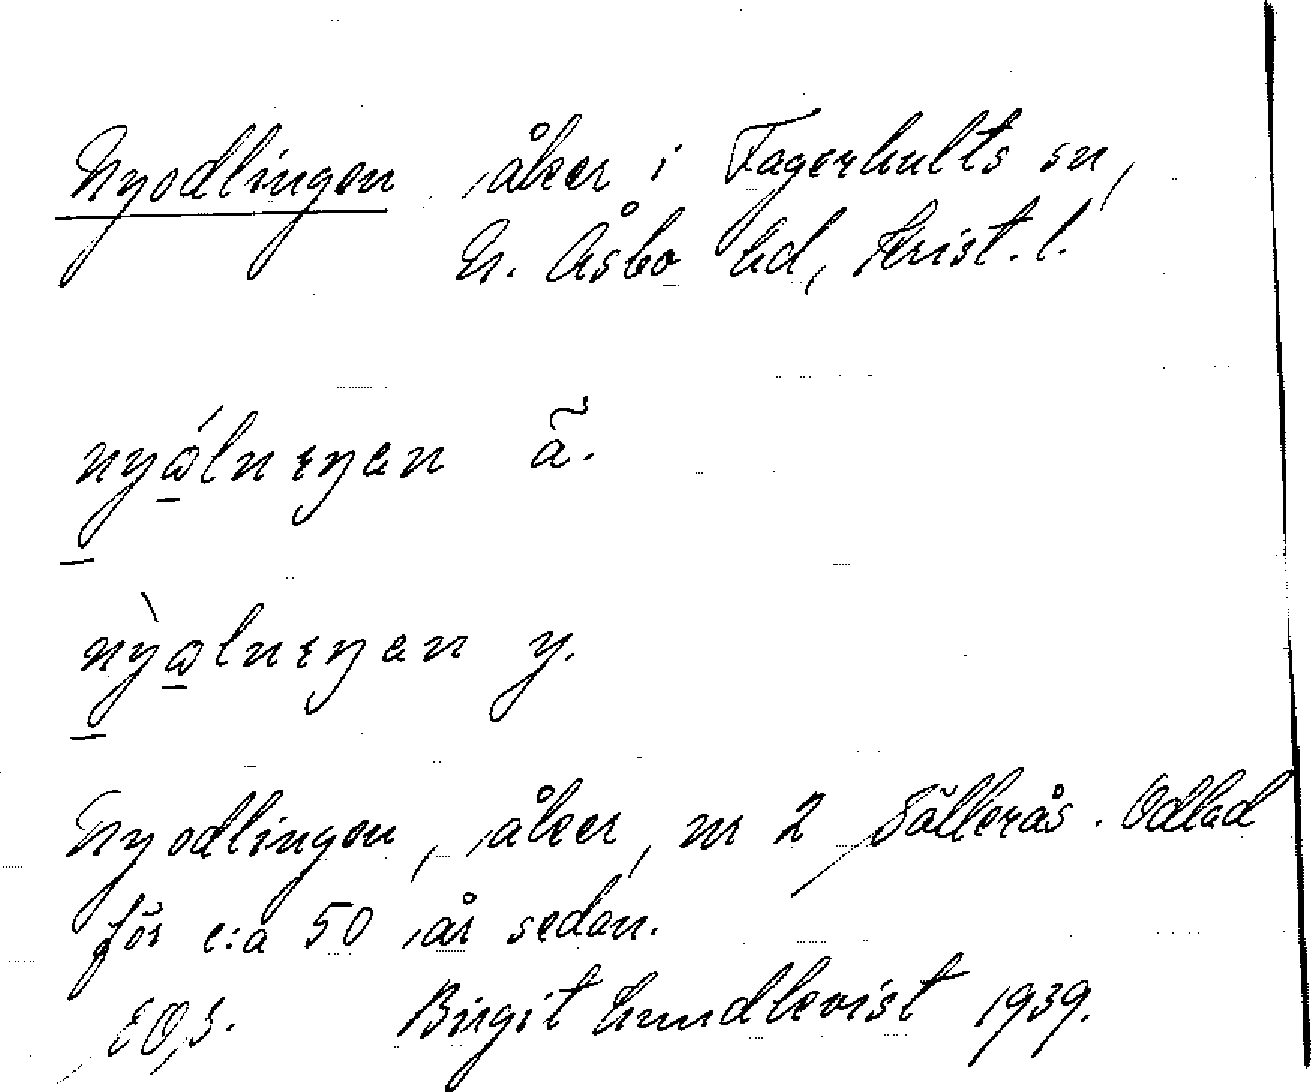 Nyodlingen, åker i Fagerhults sn,
N. Åsbo hd, Krist. l.
nyǫ́lnıŋen ã.
nỳǫlnıŋen y.
Nyodlingen, åker, nr 2 Sällerås. Odlad
för c:a 50 år sedan.
Birgit Lundkvist 1939.